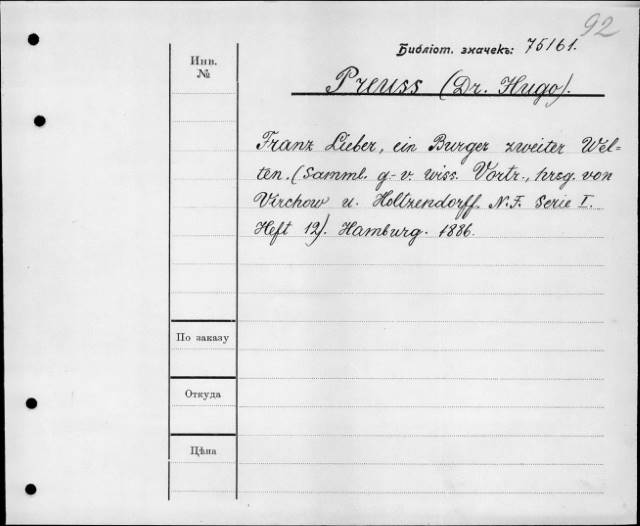 92
Библіот. значекъ: 75161.
Инв.
№
Preuss (Dr. Hugo).
Franz Lieber, ein Burger zweiter Wel-
ten. (Samml. g.-v. wiss. Vortr., hrsg. von
Virchow u. Holtzendorff. N.F. Serie I.
Heft 12). Hamburg. 1886.
По заказу
Откуда
Цѣна